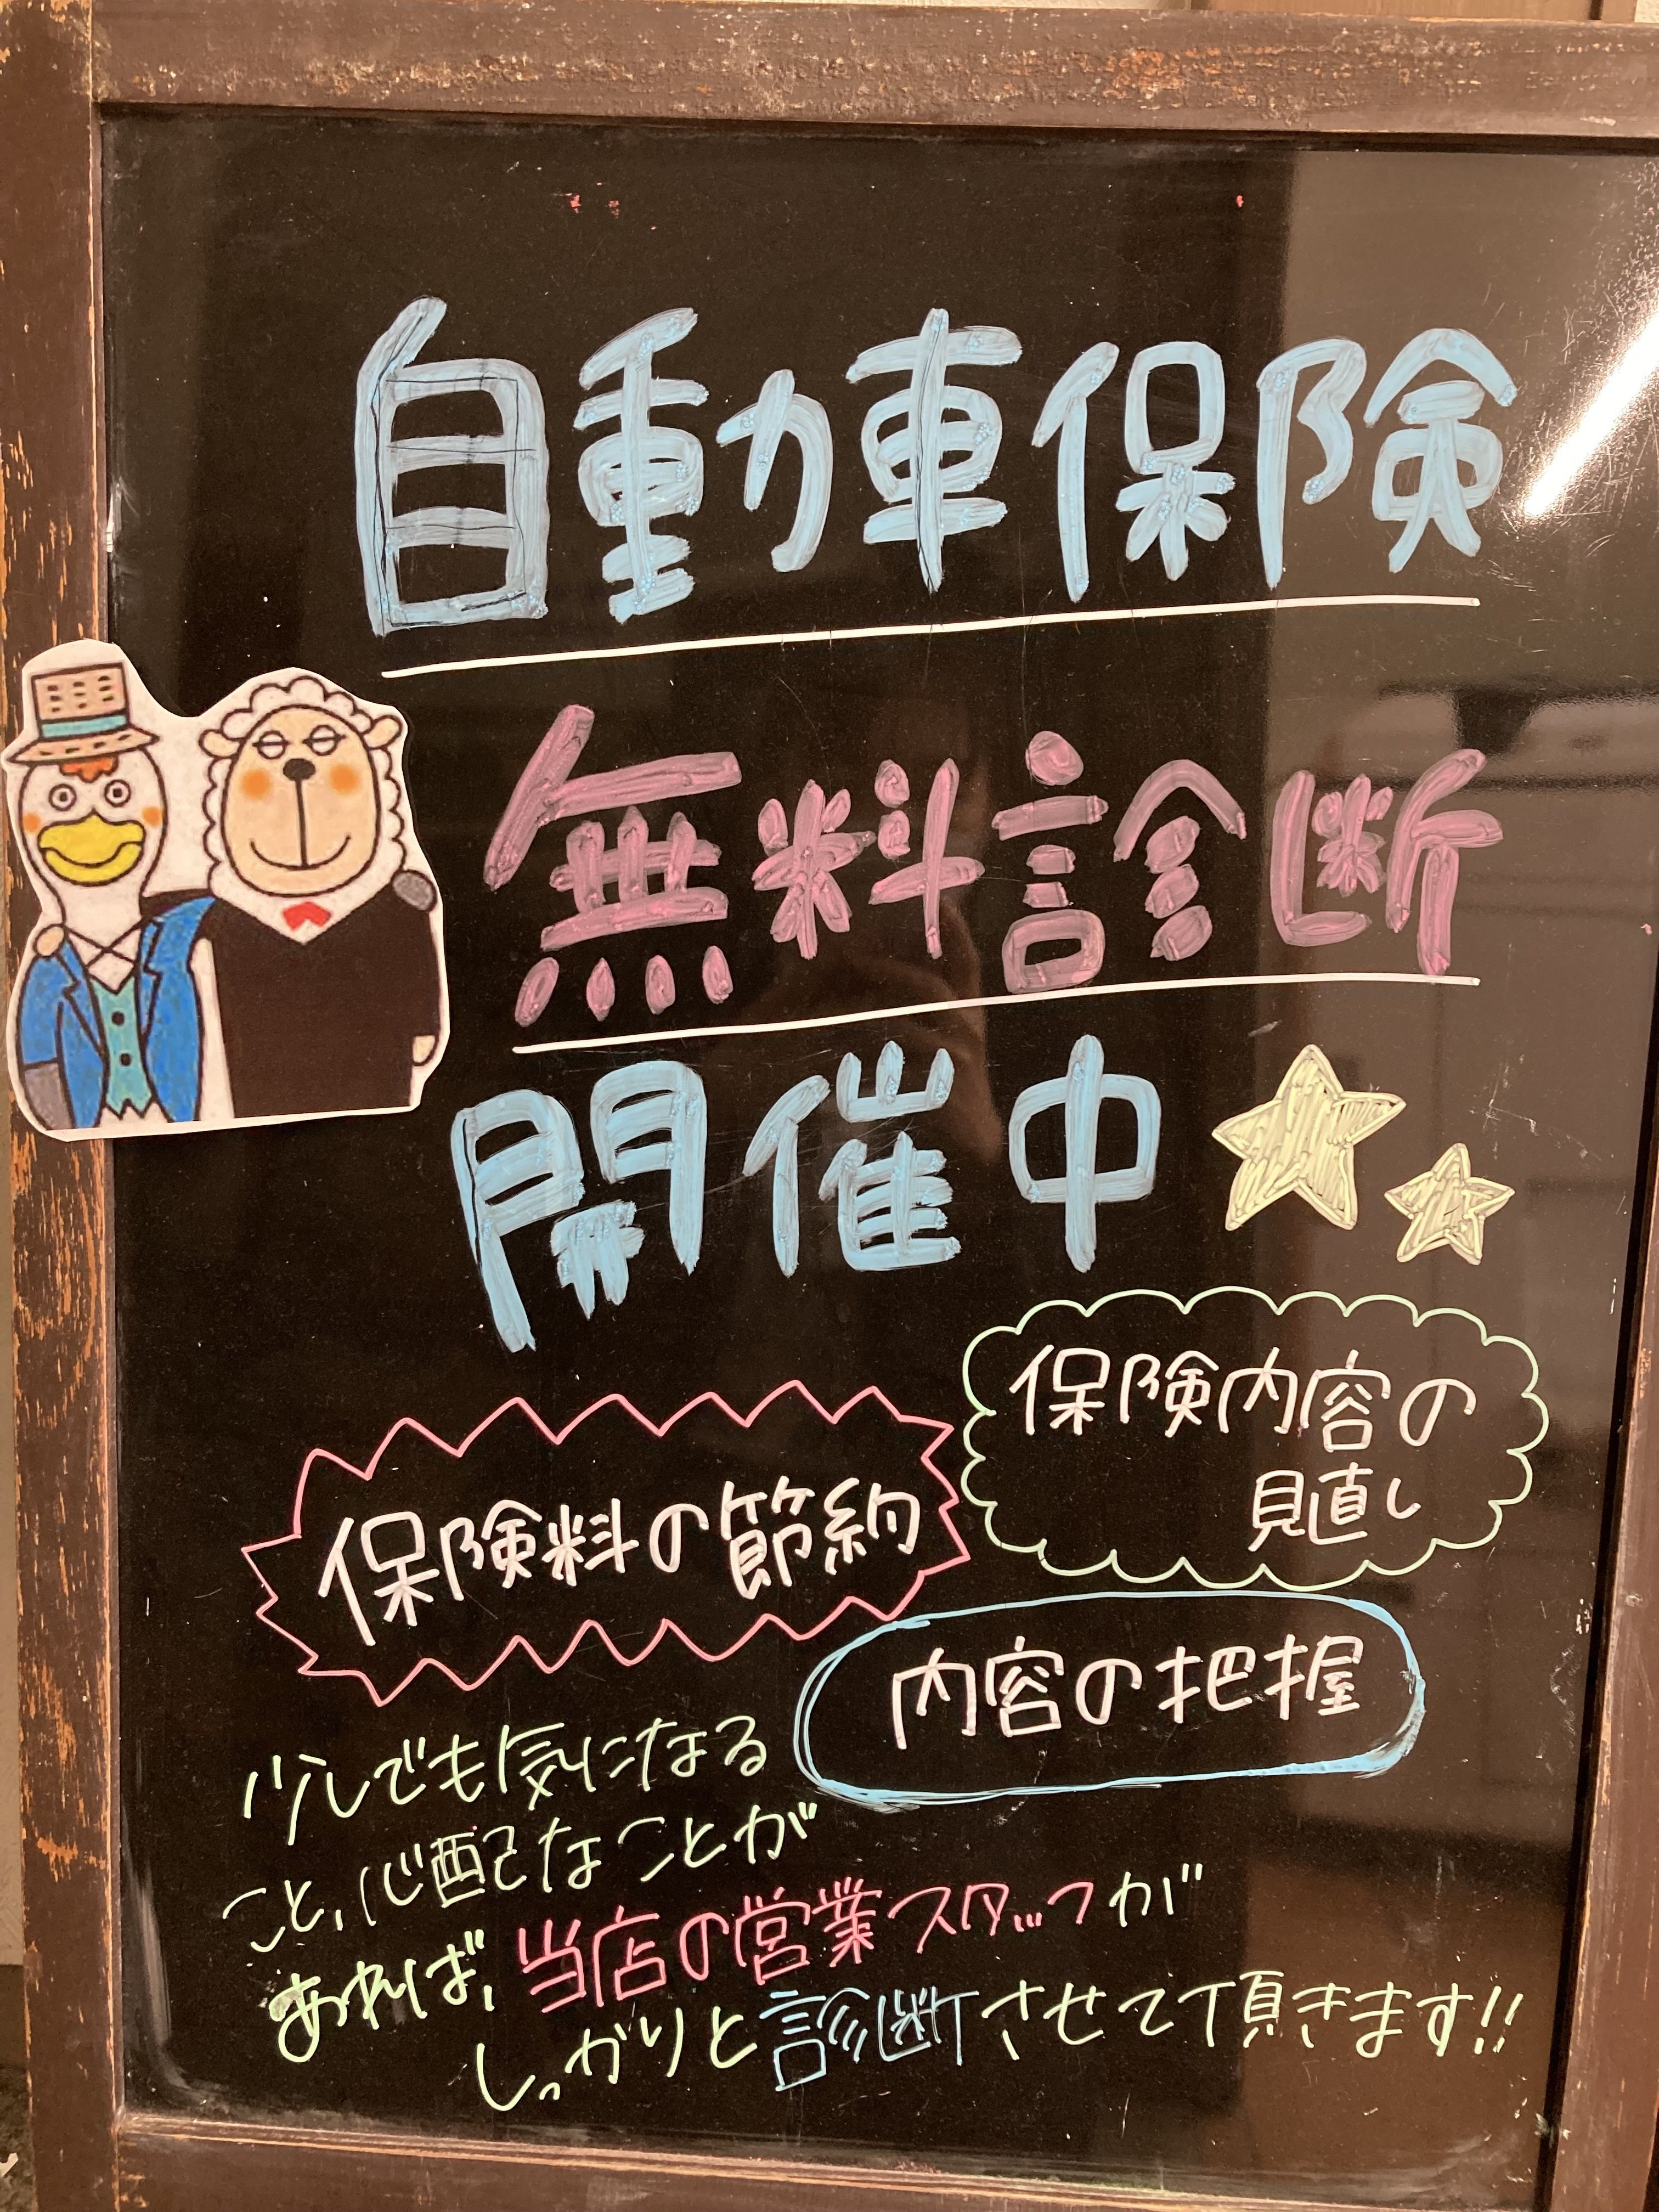 自動車保険
無料診断
開催中
保険内容の
見直し
保険料の節約
内容の把握
少しでも気になる
こと、心配なことが
あれば、当店の営業スタッフが
しっかりと診断させて頂きます!!